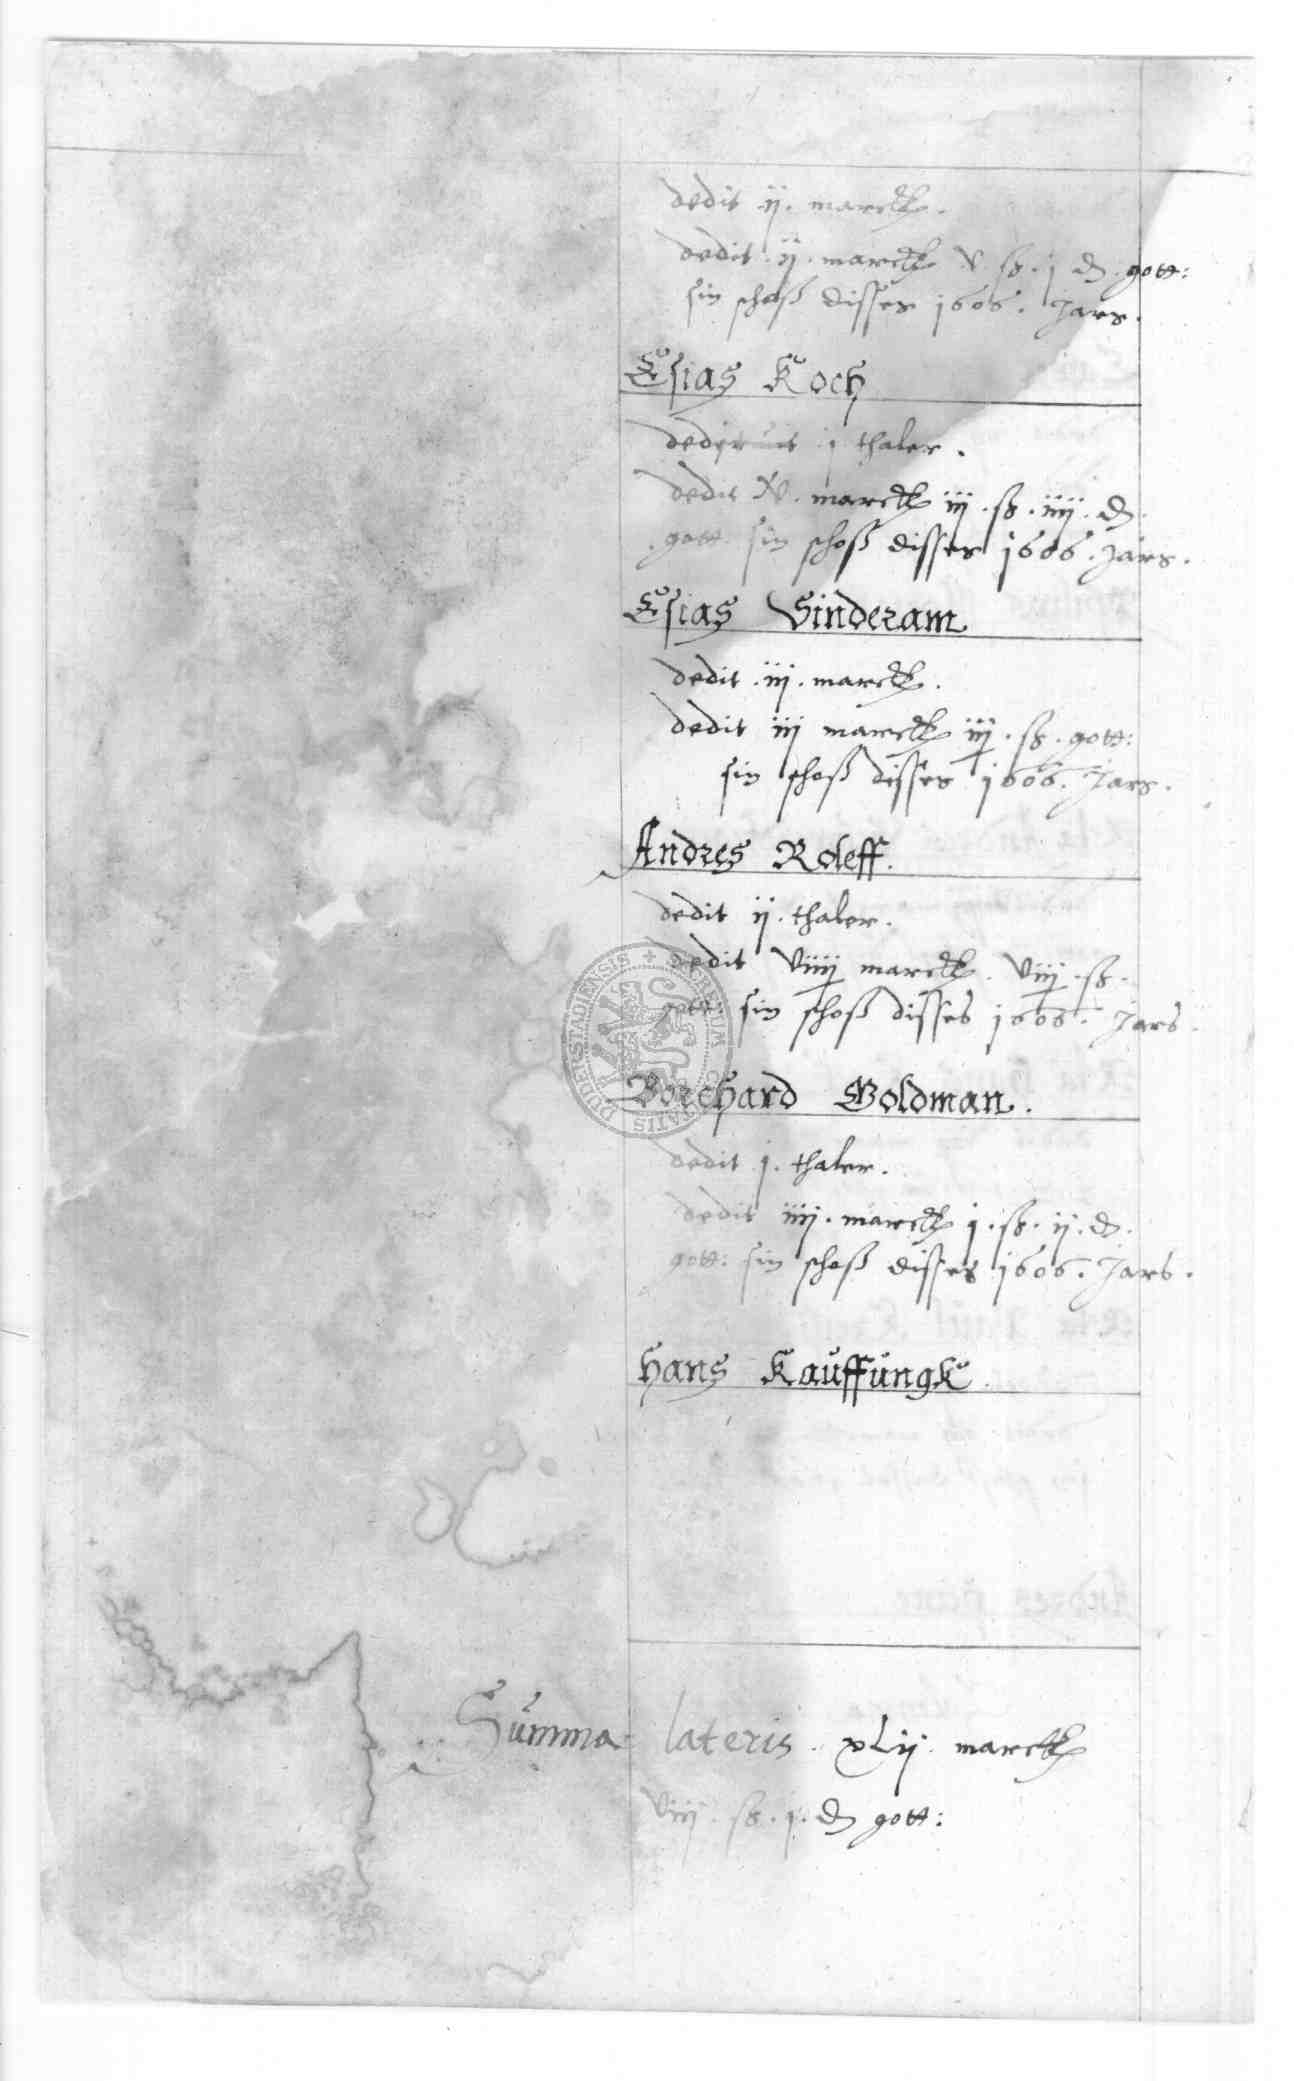 dedit ij. marck.
dedit ij. marck v ß. j d. gott:
sin schoß disses 1606. Jars.
Esias Koch
dederunt j thaler.
dedit marck iij. ß. iiij. d.
gott. sin schoß disses 1606. Jars.
Esias Sinderam
dedit .iij. marck.
dedit iij marck iij. ß. gott:
sin schoß disses 1606. Jars.
Andres Roleff.
dedit ij. thaler.
dedit viiij marck. viij. ß.
gott: sin schoß disses 1606. Jars.
Borchard Goldman.
dedit j. thaler.
dedit iiij. marck j. ß. ij. d.
gott: sin schoß disses 1606. Jars.
Hans Kauffungk.
Summa lateris. xLij. marck
viij. ß. j. d gott: